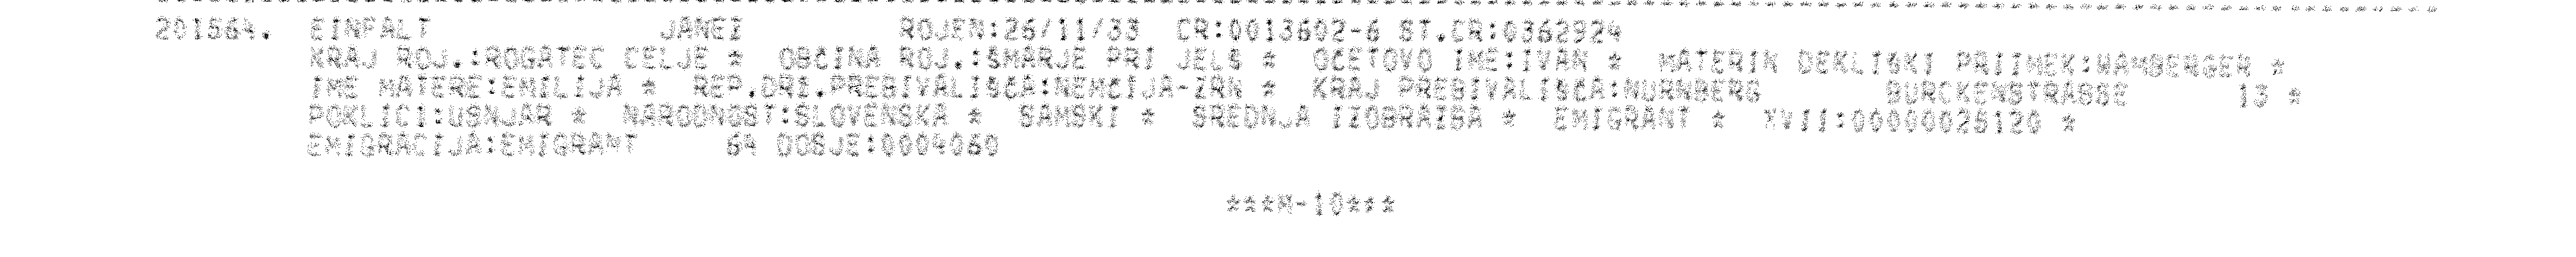 201564. EINFALT JANEI ROJEN:26/11/33 CR:0013602-6 ST.CR:0362924
KRAJ ROJ.:ROGATEC CELJE * OBČINA ROJ.:ŠMARJE PRI JELŠ * OČETOVO IME:IVAN * MATERIN DEKLIŠKI PRIIMEK:NAMBERGER *
IME MATERE:EMILIJA * REP.DRI.PREBIVALIŠČA:NEMČIJA-ZRN * KRAJ PREBIVALIŠČA:NURNBERG BURCKENSTRASSE 13 *
POKLICI:USNJAR * NARODNOST:SLOVENSKA * SAMSKI * SREDNJA IIOBRAIBA * EMIGRANT * XVII:00000025120 *
EMIGRACIJA:EMIGRANT 64 DOSJE:0004060
***M-10***